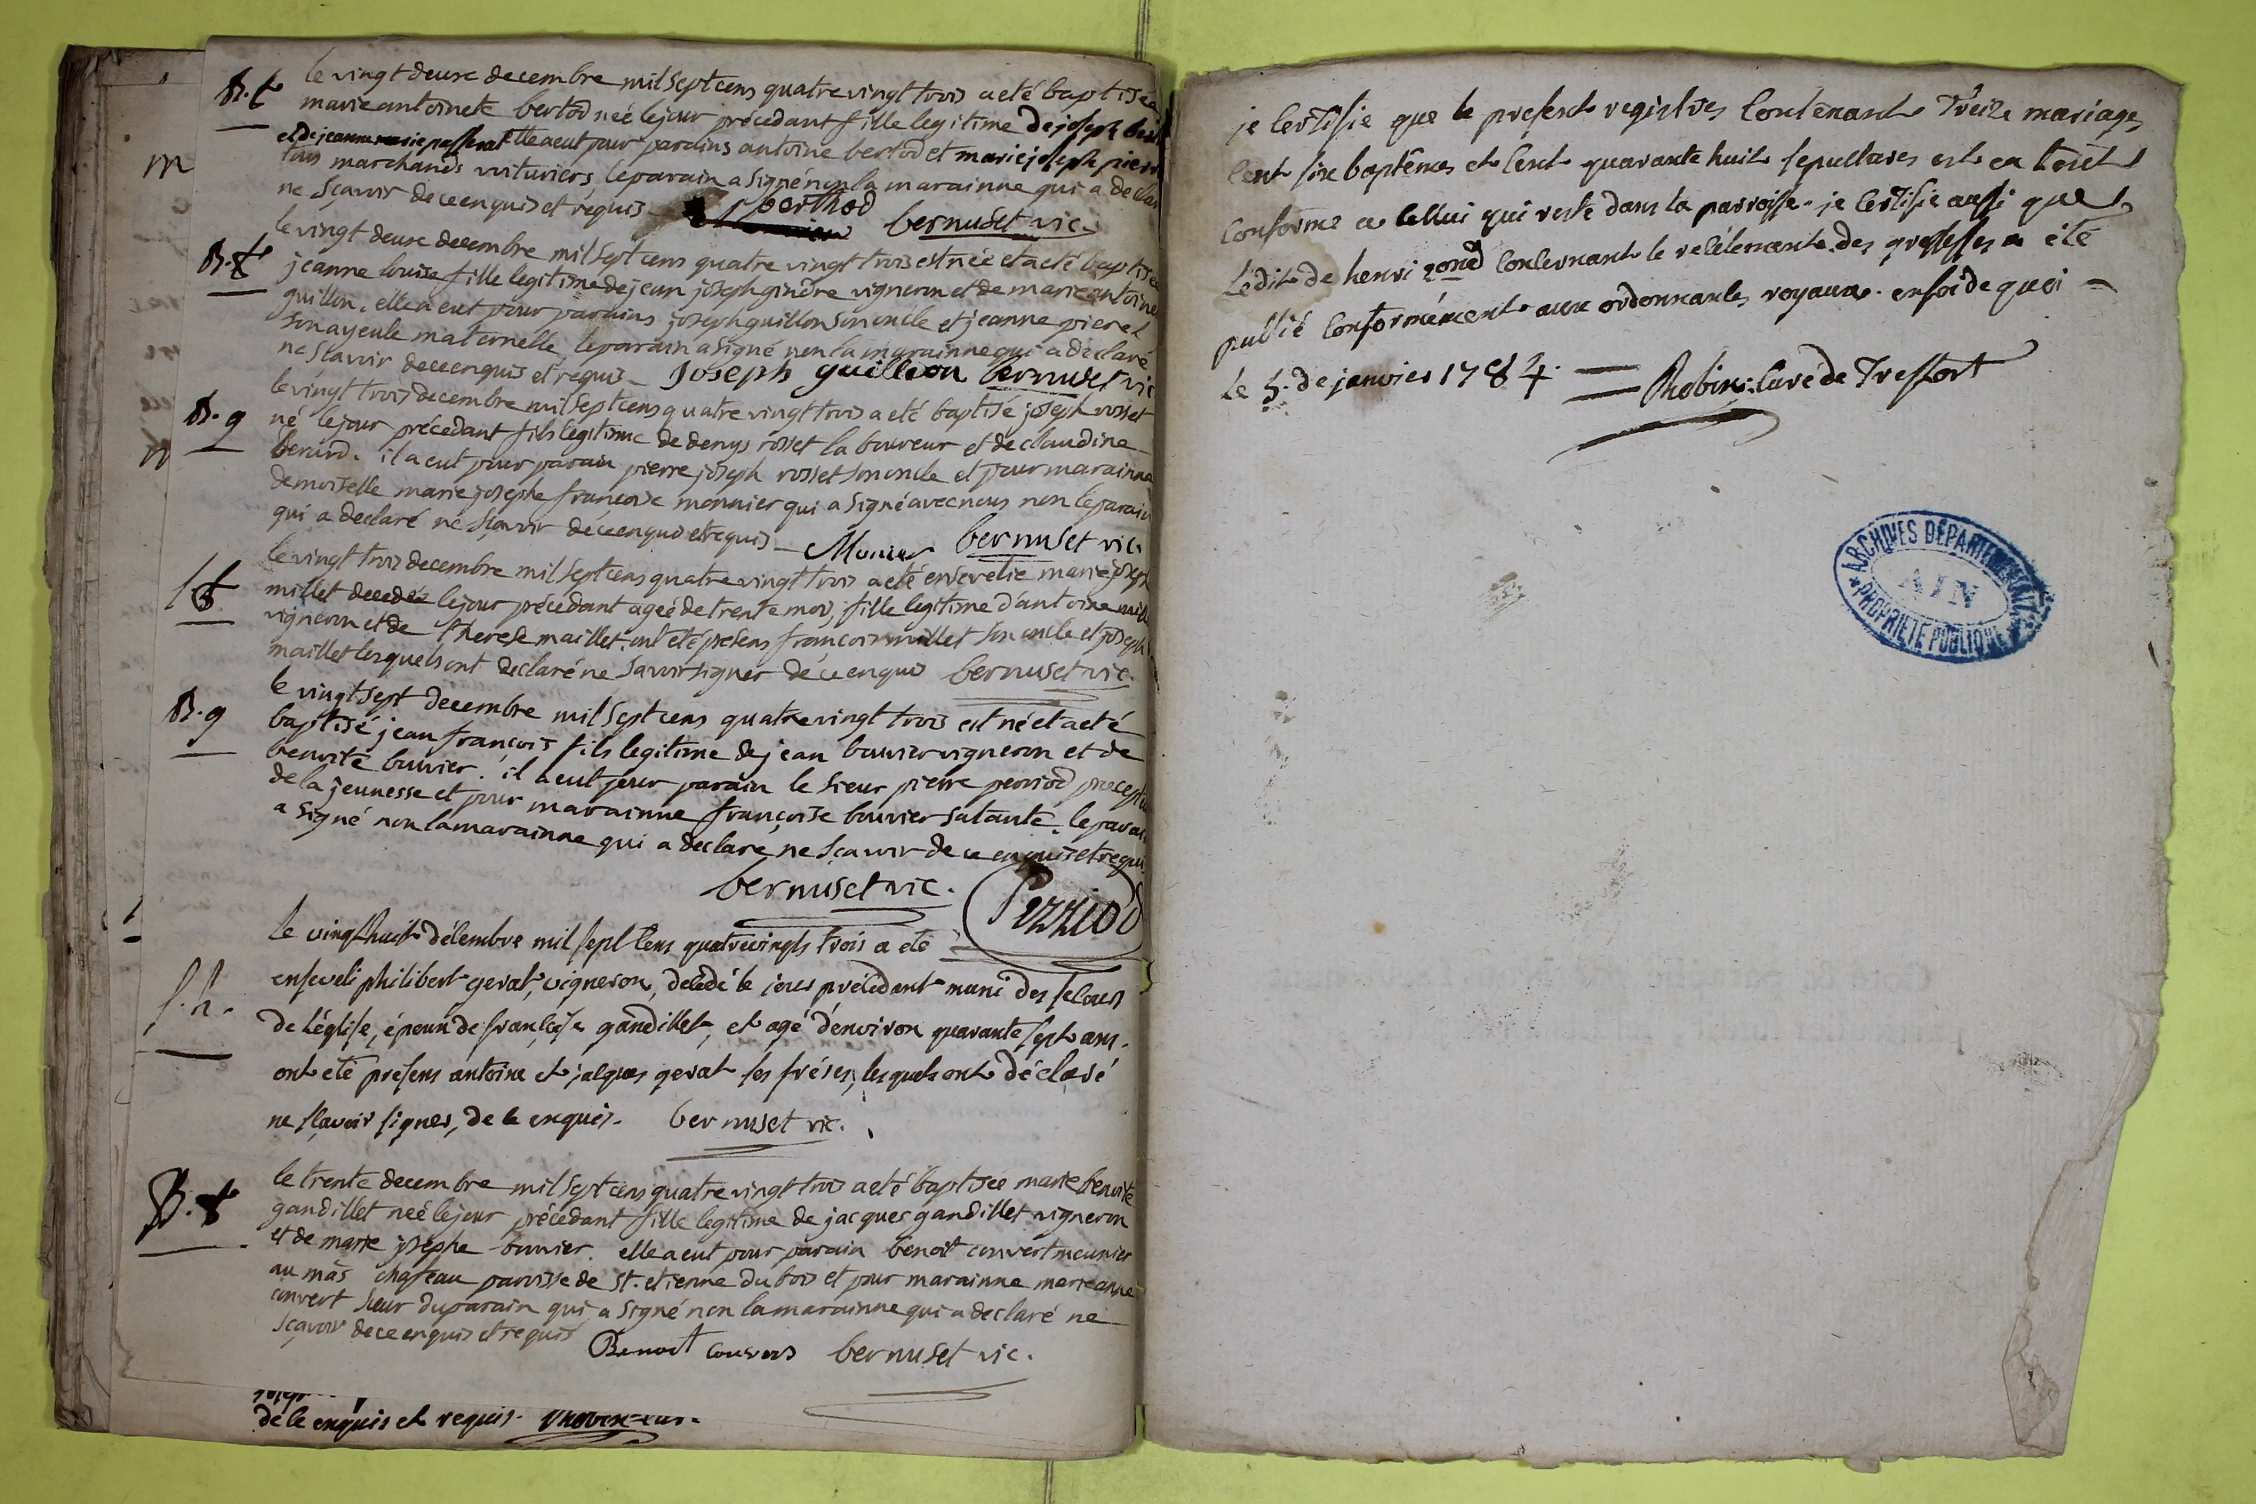 B. f
le vingt deux decembre mil sept cens quatre vingt trois a eté baptisée
marie antoinete bertod neé le jour précedant fille legitime de joseph bert
et de jeanne marie passerat elle a eut pour parains antoine bertod et marie josephe pier
tous marchands voituriers, le parain a signé non la marainne qui a decla
ne sçavoir de ce enquis et requis - berthod bernuset vic.
B. f
le vingt deux decembre mil sept cens quatre vingt trois est née et a eté baptisée
jeanne louise fille legitime de jean joseph gindre vigneron et de marie antoine
guillon. elle a eut pour parains joseph guillon son oncle et jeanne pieret
son ayeule maternelle, le parain a signé non la marainne qui a declaré
ne sçavoir de ce enquis et requis - Joseph guillion bernuset vic
B. g
le vingt trois decembre mil sept cens quatre vingt trois a eté baptisé joseph rosset
né le jour précedant fils legitime de denys rosset laboureur et de claudine
berard. il a eut pour parain pierre joseph rosset son oncle et pour marainne
demoiselle marie josephe françoise monnier qui a signé avec nous non le parain
qui a declaré ne sçavoir de ce enquis et requis - Monier bernuset vic.
le vingt trois decembre mil sept cens quatre vingt trois a eté ensevelie marie joseph
millet decedée le jour précedant ageé de trente mois, fille legitime d'antoine mill
vigneron et de therese maillet. ont eté presens francois millet son oncle et joseph
maillet lesquels ont declaré ne savoir signer de ce enquis bernuset vic.
B. g
le vingt sept decembre mil sept cens quatre vingt trois est né et a eté
baptisé jean françois fils legitime de jean bouvier vigneron et de
benoite bouvier. il a eut pour parain le sieur pierre perriod precept
de la jeunesse et pour marainne françoise bouvier sa tante. le parain
a signé non la marainne qui a declare ne sçavoir de ce enquis et requi
bernuset vic. Perriod
le vingt huit décembre mil sept cens quatrevingts trois a eté
S. h.
enseveli philibert gerat, vigneron, décédé le jour précédant muni des secours
de l'église, époux de françoise gandillet, et agé d'environ quarante sept ans.
ont eté presens antoine et jacques gerat ses fréres, lesquels ont déclaré
ne sçavoir signer, de ce enquis. bernuset vic.
B. f
le trente decembre mil sept cens quatre vingt trois a eté baptisée marie benoite
gandillet neé le jour précedant fille legitime de jacques gandillet vigneron
et de marie josephe bouvier. elle a eut pour parain benoit convert meunier
au mas chateau paroisse de St. etienne du bois et pour marainne marie anne
convert sœur du parain qui a signé non la marainne qui a declaré ne
sçavoir de ce enquis et requis Benoit convers bernuset vic.
de ce enquis et requis. Robin cur.
je certifie que le present registres contenant treize mariages
cent six baptêmes et cent quarante huit sepultures est en tout
conforme a cellui qui reste dans la parroisse. je certifie aussi que
l'edit de henri 2ond concernant le recélement des grossesses a été
publié conformément aux ordonnances royaux. en foi de quoi -
le 5. de janvier 1784. Robin: curé de Treffort
ARCHIVES DÉPARTEMENTALES
AIN
PROPRIÉTÉ PUBLIQUE